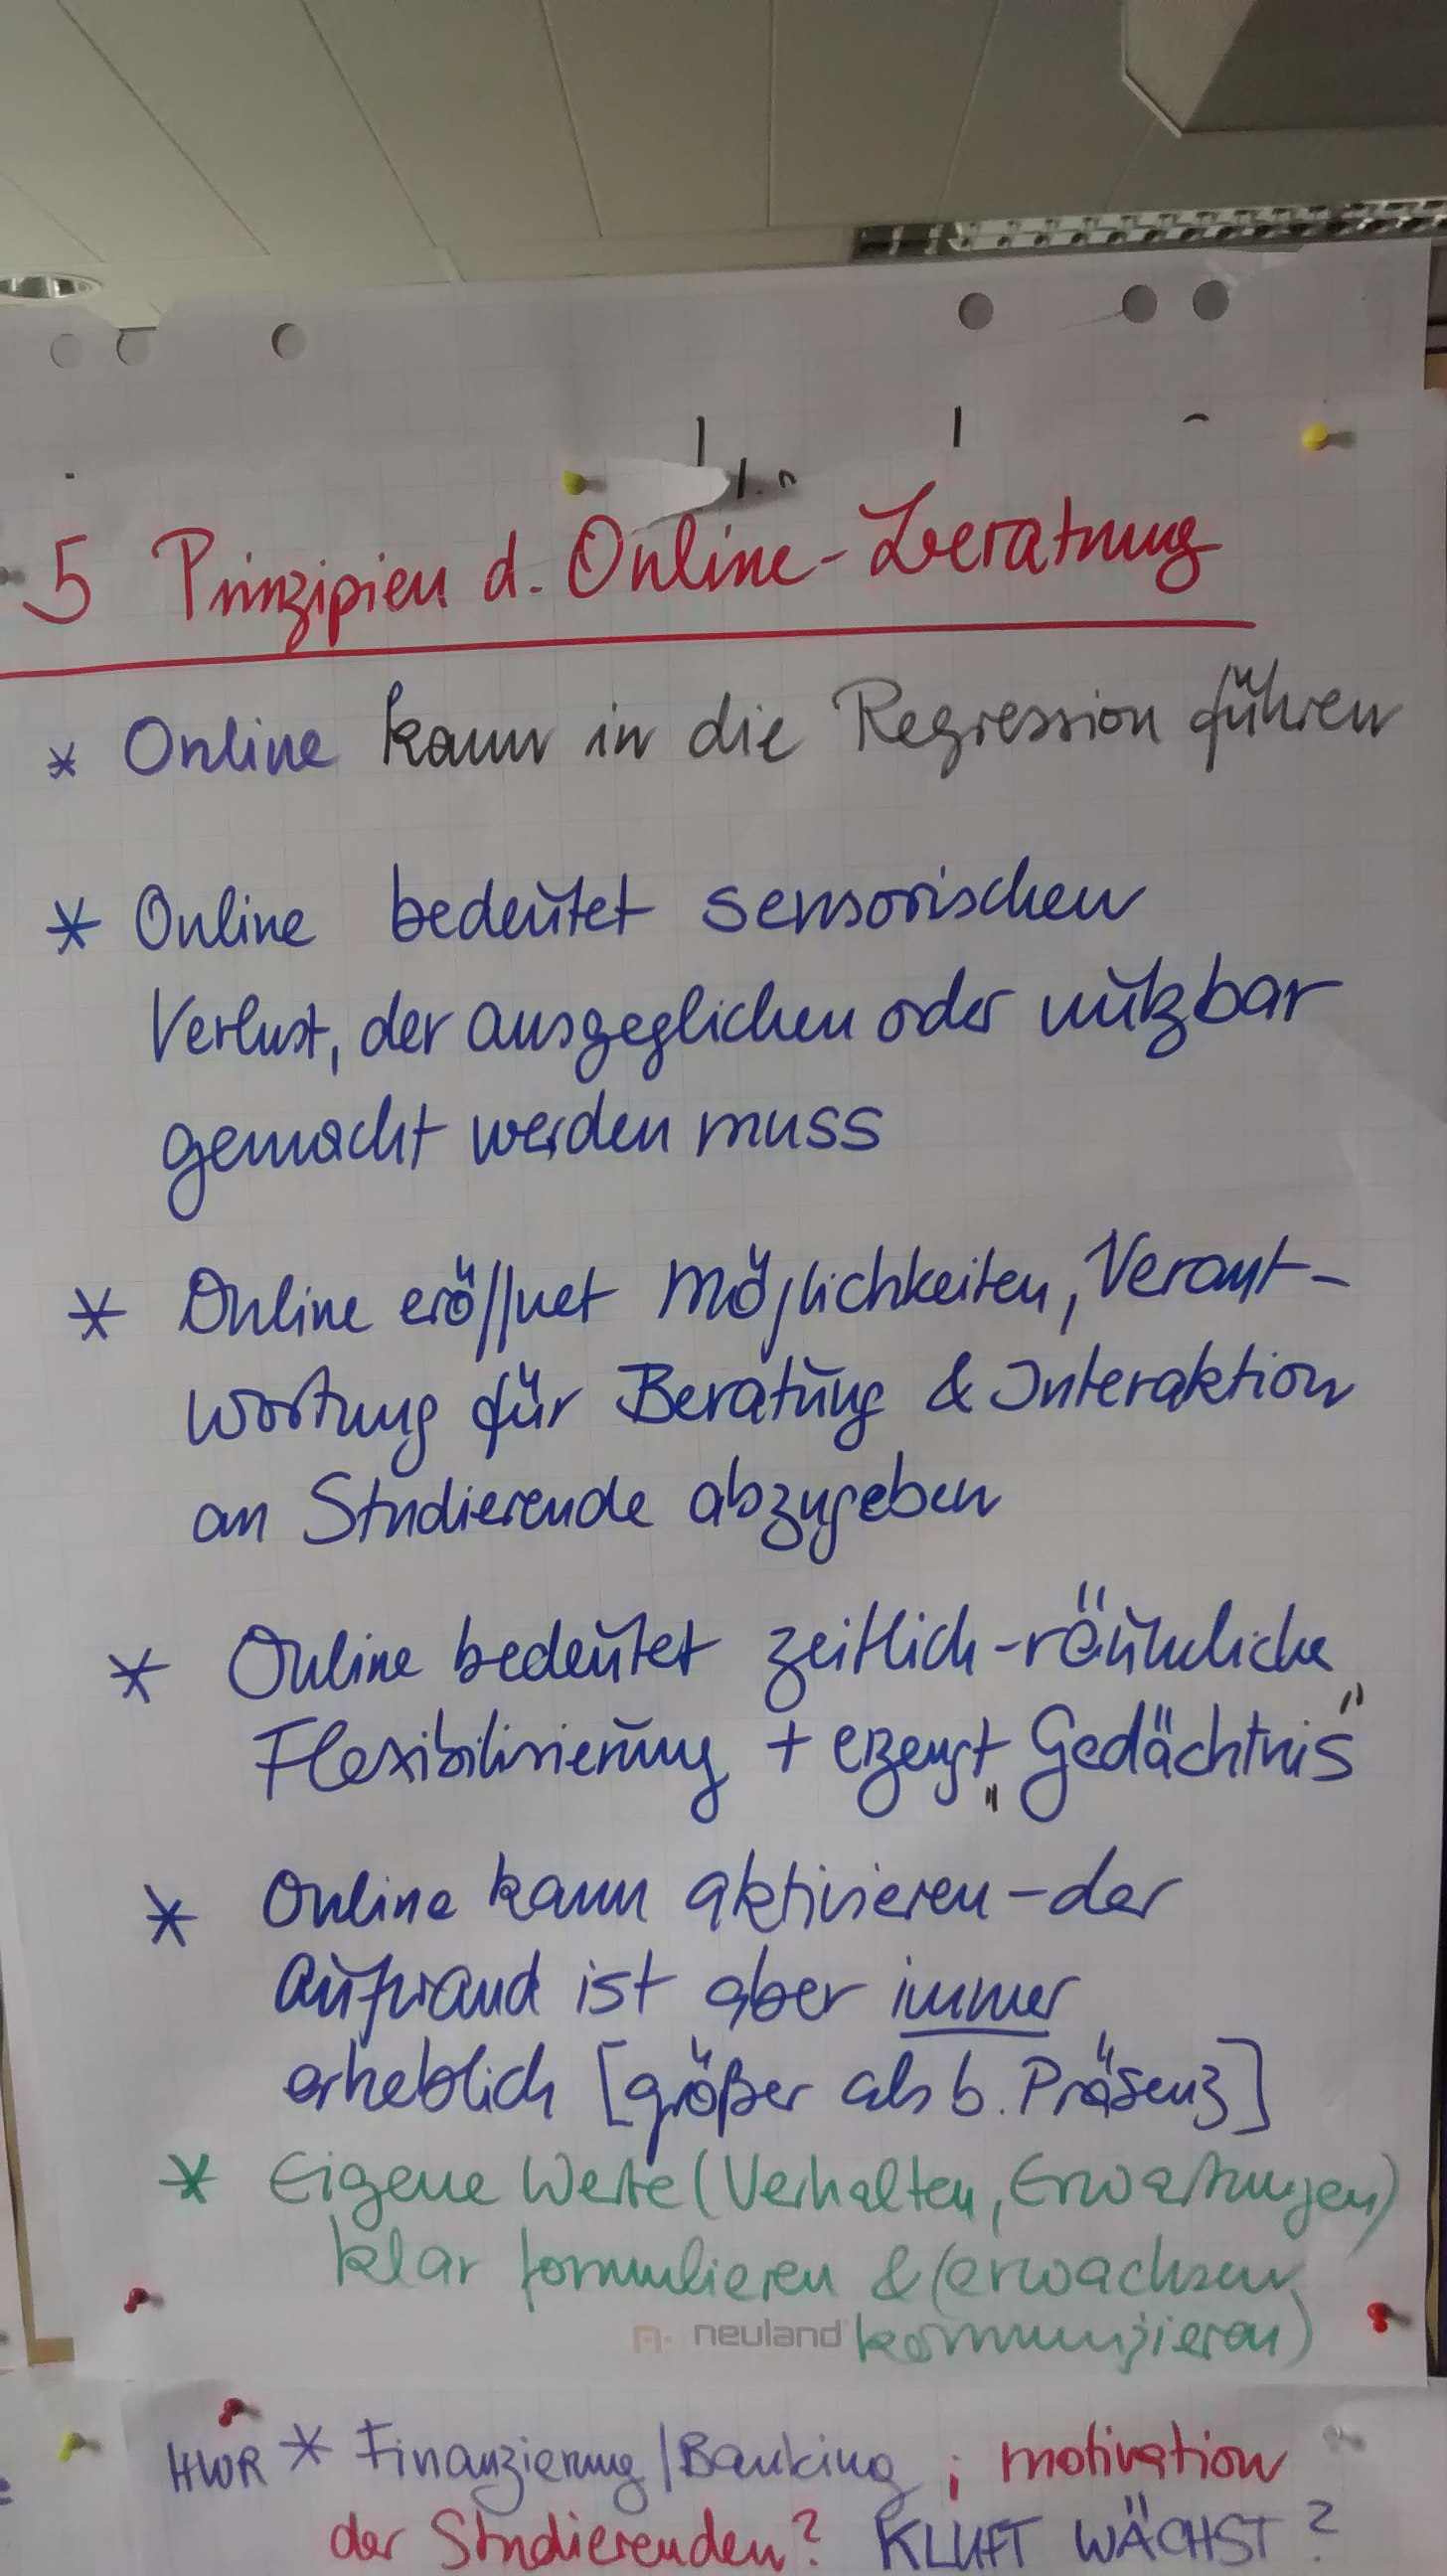 5 Prinzipien d. Online-Beratung
* Online kann in die Regression führen
* Online bedeutet sensorischen
Verlust, der ausgeglichen oder nutzbar
gemacht werden muss
* Online eröffnet Möglichkeiten, Verant-
wortung für Beratung & Interaktion
an Studierende abzugeben
* Online bedeutet zeitlich-räumliche
Flexibilisierung + erzeugt „Gedächtnis"
* Online kann aktivieren – der
Aufwand ist aber immer
erheblich [größer als b. Präsenz]
* Eigene Werte (Verhalten, Erwartungen)
klar formulieren & (erwachsen
kommunizieren)
neuland
HWR * Finanzierung/Banking ; Motivation
der Studierenden? KLUFT WÄCHST?